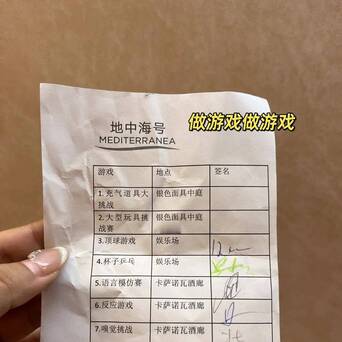 做游戏做游戏
地中海号
MEDITERRANEA
游戏 地点 签名
1.充气道具大 银色面具中庭
挑战
2.大型玩具挑 银色面具中庭
战赛
3.顶球游戏 娱乐场
4.杯子乒乓 娱乐场
5.语言模仿赛 卡萨诺瓦酒廊
6.反应游戏 卡萨诺瓦酒廊
7.嗅觉挑战 卡萨诺瓦酒廊